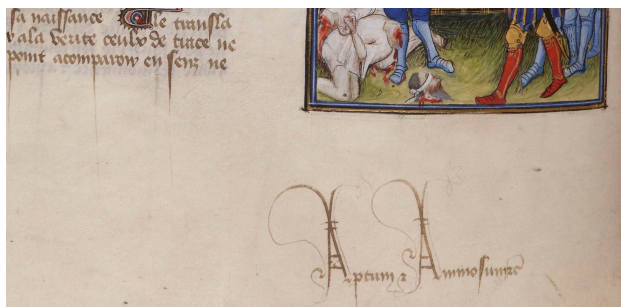 sa naissance Le transla
v ala verite ceulx de turce ne
point acomparoir en sens ne
Aptum